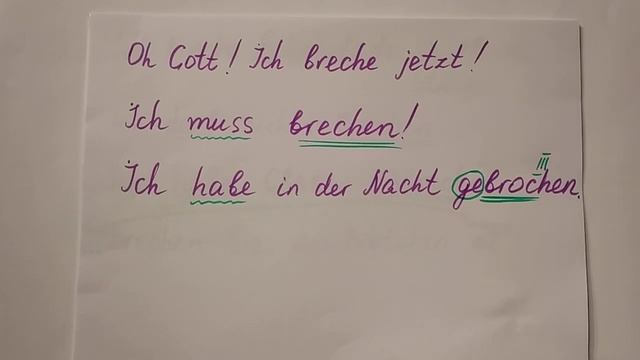 Oh Gott! Ich breche jetzt!
Ich muss brechen!
Ich habe in der Nacht gebrochen.
III